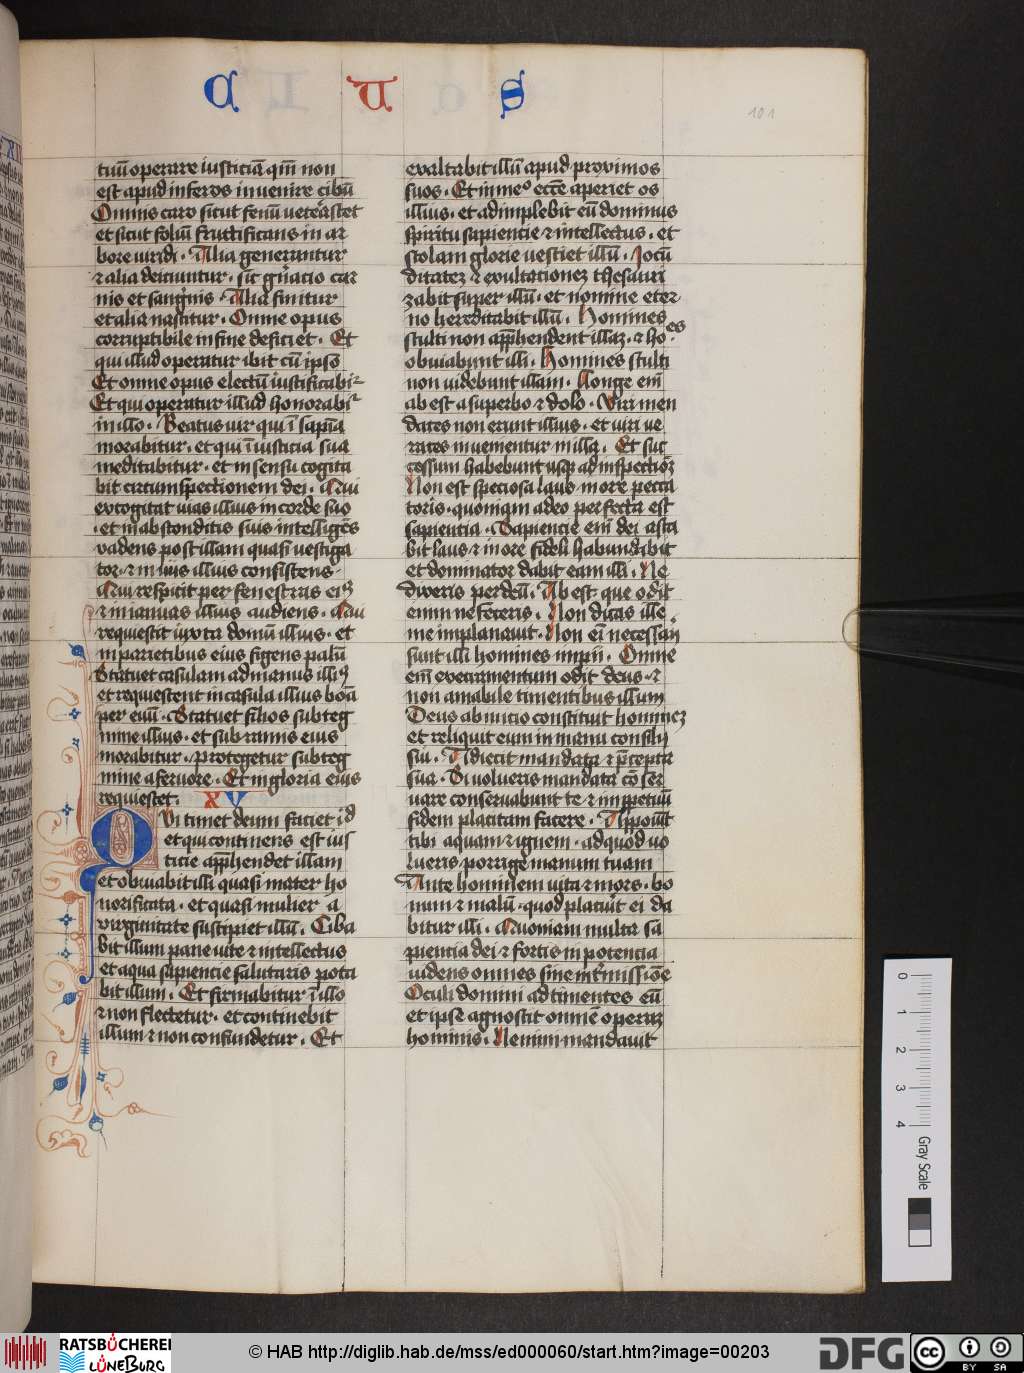 C U S
101
tuū operare iusticiā qm̄ non
est apud inferos inuenire cibū
Omnis caro sicut fenū veterastet
et sicut foliū fructificans in ar
bore viridi. Alia generantur
et alia deiciuntur. sic gn̄acio car
nis et sangnis. Alia finitur
et alia nascitur. Omne opus
corruptibile in fine deficiet. Et
qui illud operatur ibit cū ipso
Et omne opus electū iustificabit
Et qui operatur illud honorabit
in illo. Beatus uir qui ī sapīa
morabitur. et qui ī iusticia sua
meditabitur. et in sensu cogita
bit circumspectionem dei. Qui
excogitat uias illius in corde suo
et in absconditis suis intelligēs
vadens post illam quasi vestiga
tor et in uiis illius consistens.
Qui respicit per fenestras eius
et in ianuas illius audiens. Qui
requiescit iuxta domū illius. et
in parietibus eius figens palū
Statuet casulam ad manus illius
et requiescent in casula illius bōa
per euū. Statuet filios sub teg
mine illius. et sub ramis eius
morabitur. protegetur sub teg
mine a feruore. Et in gloria eius
requiescet. XV
Qui timet deum faciet id
et qui continens est ius
ticie app̄hendet illam
et obuiabit illi quasi mater ho
norificata. et quasi mulier a
virginitate suscipiet illū. Ciba
bit illum pane uite et intellectus
et aqua sapiencie salutaris pota
bit illum. Et firmabitur ī illo
et non flectetur. et continebit
illum et non confundetur. Et
exaltabit illū apud proximos
suos. Et in meo ecc̄e aperiet os
illius. et adimplebit eū dominus
spiritu sapiencie et intellectus. et
stolam glorie uestiet illū. Jocū
ditatem et exultationem thesauri
zabit super illū. et nomine eter
no hereditabit illū. Homines
stulti non app̄hendent illam. et hoēs
obuiabunt illi. Homines stulti
non uidebunt illam. Longe em̄
abest a superbo et dolo. Viri men
daces non erunt illius. et uiri ve
races inuenientur in illa. Et suc
cessum habebunt usq ad inspectiōem
Non est speciosa laus in ore pecca
toris. quoniam a deo perfecta est
sapientia. Sapiencie em̄ dei asta
bit laus et in ore fideli habundabit
et dominator dabit eam illi. Ne
dixeris per deū. Abest. que odit
enim ne feceris. Non dicas ille
me implanauit. Non em̄ necessarii
sunt illi homines impii. Omne
em̄ execramentum odit deus. et
non amabile timentibus illum
Deus ab inicio constituit hominem
et reliquit eum in manu consilii
sui. Adiecit mandata et p̄cepta
sua. Si uolueris mandata cōser
uare conseruabunt te et in ppetuū
fidem placitam facere. Apposuit
tibi aquam et ignem. ad quod uo
lueris porrige manum tuam
Ante hominem uita et mors. bo
num et malū. quod placuit ei da
bitur illi. Quoniam multa sa
piencia dei et fortis in potencia
uidens omnes sine int̄missiōe
Oculi domini ad timentes eū
et ipse agnoscit omnē operam
hominis. Nemini mandauit
0 1 2 3 4
Gray Scale
RATSBÜCHEREI
LÜNEBURG
© HAB http://diglib.hab.de/mss/ed000060/start.htm?image=00203
DFG
cc BY SA